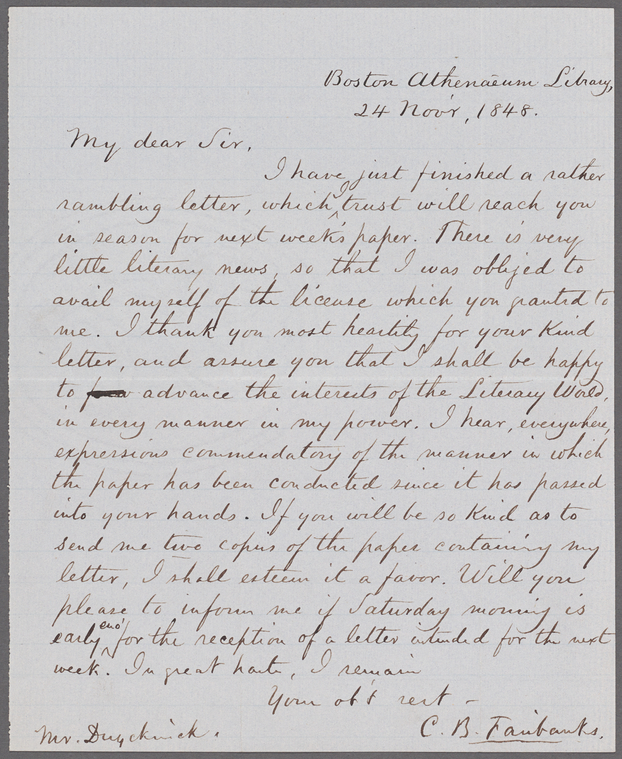 Boston Athenaeum Library,
24 Nov'r, 1848.
My dear Sir,
I have just finished a rather
rambling letter, which I trust will reach you
in season for next week's paper. There is very
little literary news, so that I was obliged to
avail myself of the license which you granted to
me. I thank you most heartily for your kind
letter, and assure you that I shall be happy
to advance the interests of the Literary World,
in every manner in my power. I hear, everywhere,
expressions commendatory of the manner in which
the paper has been conducted since it has passed
into your hands. If you will be so kind as to
send me two copies of the paper containing my
letter, I shall esteem it a favor. Will you
please to inform me if Saturday morning is
early eno' for the reception of a letter intended for the next
week. In great haste, I remain
Your obt servt -
C. B. Fairbanks.
Mr. Duyckinck.